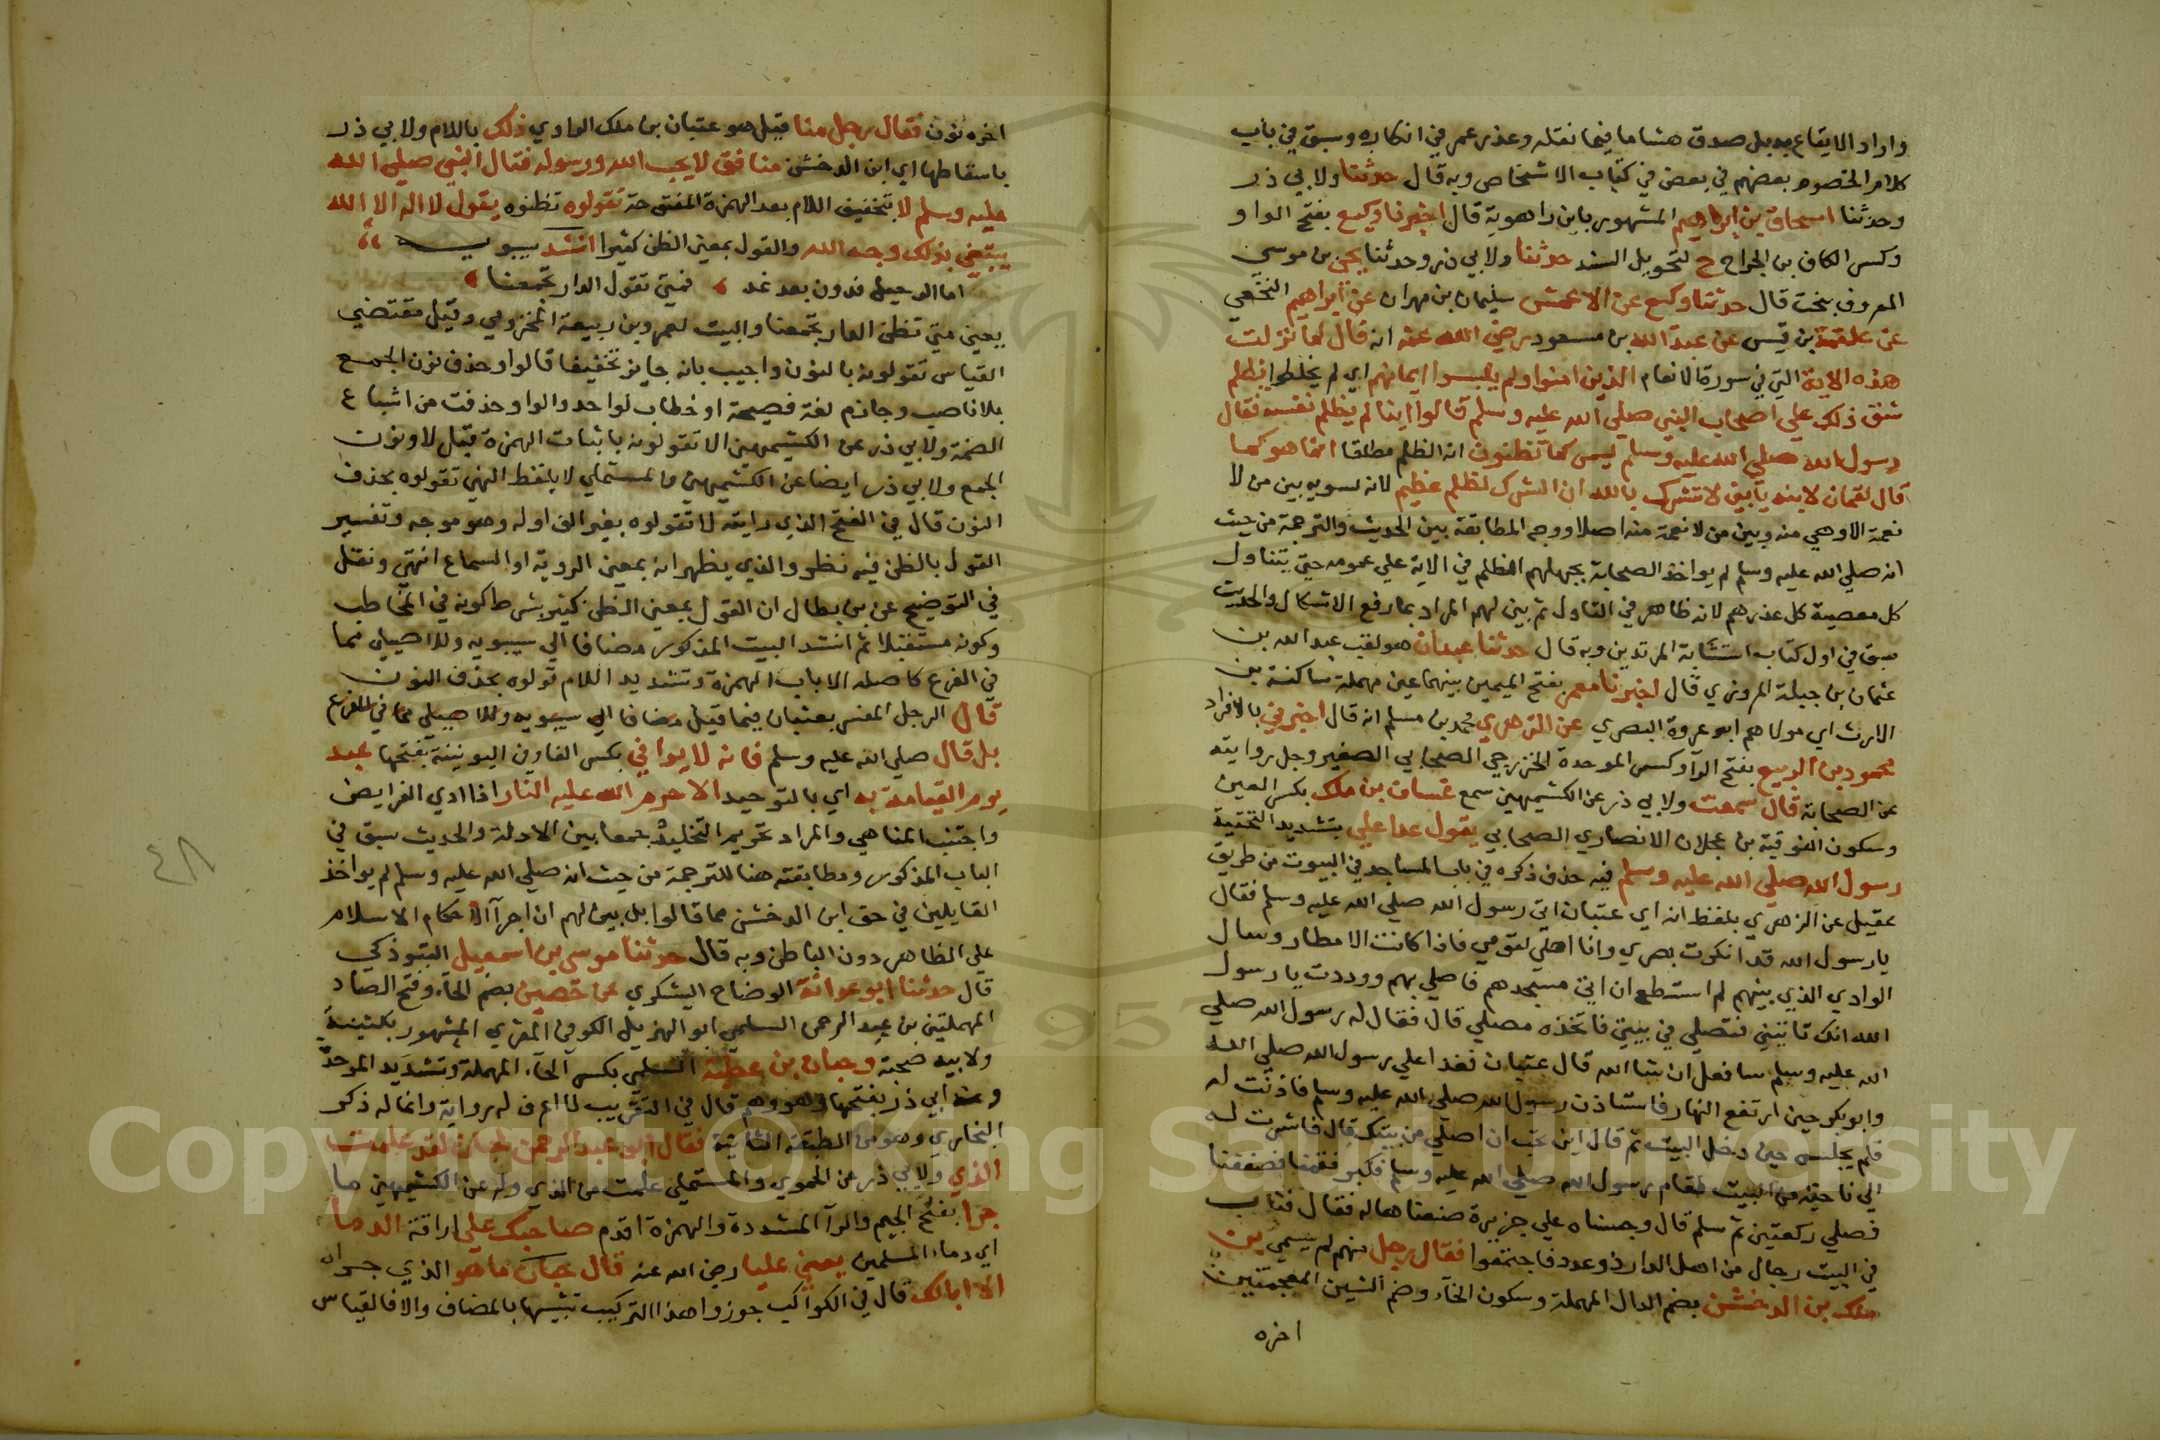 واراد الايقاع به بل صدق هشاما فيما نقله وعذر عمر في انكاره وسبق في باب
كلام الخصوم بعضهم في بعض في كتاب الاشخاص وبه قال حدثنا ولابي ذر
وحدثنا اسحاق بن ابراهيم المشهور بابن راهويه قال اخبرنا وكيع بفتح الواو
وكسر الكاف بن الجراح ح لتحويل السند حدثنا ولابي ذر وحدثنا يحيى بن موسى
المعروف بخت قال حدثنا وكيع عن الاعمش سليمان بن مهران عن ابراهيم النخعي
عن علقمة بن قيس عن عبد الله بن مسعود رضي الله عنه انه قال لما نزلت
هذه الاية التي في سورة الانعام الذين امنوا ولم يلبسوا ايمانهم اي لم يخلطوا بظلم
شق ذلك على اصحاب النبي صلى الله عليه وسلم قالوا اينا لم يظلم نفسه فقال
رسول الله صلى الله عليه وسلم ليس كما تظنون انه الظلم مطلقا انما هو كما
قال لقمان لابنه يا بني لا تشرك بالله ان الشرك لظلم عظيم لانه تسوية بين من لا
نعمة الا وهي منه وبين من لا نعمة منه اصلا ووجه المطابقة بين الحديث والترجمة من حيث
انه صلى الله عليه وسلم لم يواخذ الصحابة بحملهم الظلم في الاية على عمومه حتى يتناول
كل معصية كل عذرهم لانه ظاهر في التاول ثم بين لهم المراد بما رفع الاشكال والحديث
سبق في اول كتاب استتابة المرتدين وبه قال حدثنا عبدان هو لقب عبد الله بن
عثمان بن جبلة المروزي قال اخبرنا معمر بفتح الميمين بينهما عين مهملة ساكنة بن
الارث اي مولاهم ابو عروة البصري عن الزهري محمد بن مسلم انه قال اخبرني بالافراد
محمود بن الربيع بفتح الرا وكسر الموحدة الخزرجي الصحابي الصغير وجل روايته
عن الصحابة قال سمعت ولابي ذر عن الكشميهني سمع عتبان بن ملك بكسر العين
وسكون الفوقية بن عجلان الانصاري الصحابي يقول غدا علي بتشديد التحتية
رسول الله صلى الله عليه وسلم فيه حذف ذكره في باب المساجد في البيوت من طريق
عقيل عن الزهري بلفظ انه اي عتبان اتى رسول الله صلى الله عليه وسلم فقال
يا رسول الله قد انكرت بصري وانا اصلي لقومي فاذا كانت الامطار وسال
الوادي الذي بينهم لم استطع ان اتى مسجدهم فاصلي بهم ووددت يا رسول
الله انك تاتيني فتصلي في بيتي فاتخذه مصلى قال فقال له رسول الله صلى
الله عليه وسلم سافعل ان شا الله قال عتبان فغدا علي رسول الله صلى الله
وابو بكر حين ارتفع النهار فاستاذن رسول الله صلى الله عليه وسلم فاذنت له
فلم يجلس حين دخل البيت ثم قال اين تحب ان اصلي من بيتك قال فاشرت له
الى ناحية من البيت فقام رسول الله صلى الله عليه وسلم فكبر فقمنا فصففنا
فصلى ركعتين ثم سلم قال وحبسناه على خزيرة صنعناها له فقال فثاب
في البيت رجال من اهل الدار ذو عدد فاجتمعوا فقال رجل منهم لم يسمى اين
ملك بن الدخشن بضم الدال المهملة وسكون الخاء وضم الشين المعجمتين
اخره
اخره نون فقال رجل منا قيل هو عتبان بن ملك الراوي ذلك باللام ولابي ذر
باسقاطها اي ابن الدخشن منافق لا يحب الله ورسوله فقال النبي صلى الله
عليه وسلم لا بتخفيف اللام بعد الهمزة المفتوحة تقولوه تظنوه يقول لا اله الا الله
يبتغي بذلك وجه الله والقول بمعنى الظن كثيرا انشد سيبويه
اما الرحيل فدون بعد غد فمتى تقول الدار تجمعنا
يعني متى تظن الدار تجمعنا والبيت لعمرو بن ربيعة المخزومي وقيل مقتضى
القياس تقولونه بالنون واجيب بانه جايز تخفيفا قالوا وحذف نون الجمع
بلا ناصب وجازم لغة فصيحة او خطاب لواحد والواو حذفت من اشباع
الضمة ولابي ذر عن الكشميهني الا تقولونه باثبات الهمزة قبل لا ونون
الجمع ولابي ذر ايضا عن الكشميهني والمستملي لا بلفظ النهي تقولوه بحذف
النون قال في الفتح الذي رايته لا تقولوه بغير الف اوله وهو موجه وتفسير
القول بالظن فيه نظر والذي يظهر انه بمعنى الروية او السماع انتهى ونقل
في التوضيح عن بن بطال ان القول بمعنى الظن كثير بشرط كونه في المخاطب
وكونه مستقبلا ثم انشد البيت المذكور مضافا الى سيبويه وللاصيلي مما
في الفرع كاصله الا باب الهمزة وتشديد اللام تولوه بحذف النون
قال الرجل المفسر بعتبان فيما قيل مضافا الى سيبويه وللاصيلي مما في الفرع
بل قال صلى الله عليه وسلم فانه لا يوافي بكسر الفا وفي اليونينية بفتحها عبد
يوم القيامة به اي بالتوحيد الا حرم الله عليه النار اذا ادى الفرايض
واجتنب المناهي والمراد تحريم التخليد جمعا بين الادلة والحديث سبق في
الباب المذكور ومطابقته هنا للترجمة من حيث انه صلى الله عليه وسلم لم يواخذ
القايلين في حق ابن الدخشن مما قالوا بل بين لهم ان اجرا احكام الاسلام
على الظاهر دون الباطن وبه قال حدثنا موسى بن اسمعيل التبوذكي
قال حدثنا ابو عوانة الوضاح اليشكري عن حصين بضم الحاء وفتح الصاد
المهملتين بن عبد الرحمن السلمي ابو الهزيل الكوفي المقري المشهور بكنيته
ولابيه صحبة وحبان بن عطية السلمي بكسر الحاء المهملة وتشديد الموحدة
وعند ابي ذر بفتحها وهو وهم قال في التقريب لا اعرف له رواية وانما له ذكر
البخاري وهو من الطبقة الثانية فقال ابو عبد الرحمن لحبان لقد علمت
الذي ولابي ذر عن الحموي والمستملي علمت من الذي وله عن الكشميهني ما
جرا بفتح الجيم والرا المشددة والهمزة اقدم صاحبك على اراقة الدما
اي دماء المسلمين يعني عليا رضي الله عنه قال حبان ما هو الذي جراه
لا ابا لك قال في الكواكب جوزوا هذا التركيب تشبيها بالمضاف والا فالقياس
٤٨
Copyright © King Saud University
1957